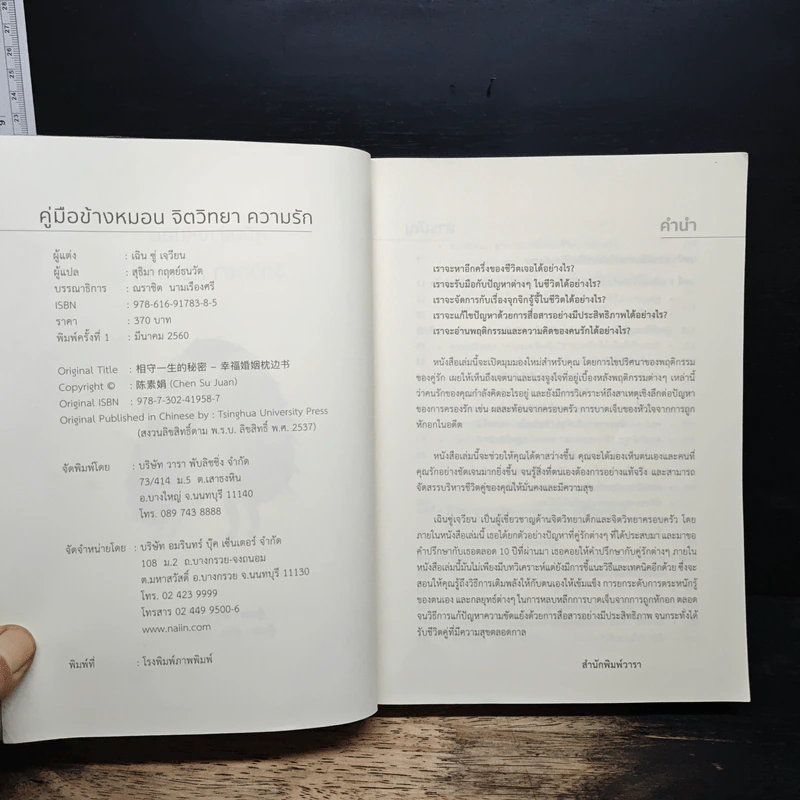 คู่มือข้างหมอน จิตวิทยา ความรัก
ผู้แต่ง : เฉิน ซู่ เจวียน
ผู้แปล : สุธิมา กฤตย์ธนวัต
บรรณาธิการ : ณราชิต นามเรืองศรี
ISBN : 978-616-91783-8-5
ราคา : 370 บาท
พิมพ์ครั้งที่ 1 : มีนาคม 2560
Original Title : 相守一生的秘密 – 幸福婚姻枕边书
Copyright © : 陈素娟 (Chen Su Juan)
Original ISBN : 978-7-302-41958-7
Original Published in Chinese by : Tsinghua University Press
(สงวนลิขสิทธิ์ตาม พ.ร.บ. ลิขสิทธิ์ พ.ศ. 2537)
จัดพิมพ์โดย : บริษัท วารา พับลิชชิ่ง จำกัด
73/414 ม.5 ต.เสาธงหิน
อ.บางใหญ่ จ.นนทบุรี 11140
โทร. 089 743 8888
จัดจำหน่ายโดย : บริษัท อมรินทร์ บุ๊ค เซ็นเตอร์ จำกัด
108 ม.2 ถ.บางกรวย-จงถนอม
ต.มหาสวัสดิ์ อ.บางกรวย จ.นนทบุรี 11130
โทร. 02 423 9999
โทรสาร 02 449 9500-6
www.naiin.com
พิมพ์ที่ : โรงพิมพ์ภาพพิมพ์
คำนำ
เราจะหาอีกครึ่งของชีวิตเจอได้อย่างไร?
เราจะรับมือกับปัญหาต่างๆ ในชีวิตได้อย่างไร?
เราจะจัดการกับเรื่องจุกจิกจู้จี้ในชีวิตได้อย่างไร?
เราจะแก้ไขปัญหาด้วยการสื่อสารอย่างมีประสิทธิภาพได้อย่างไร?
เราจะอ่านพฤติกรรมและความคิดของคนรักได้อย่างไร?
หนังสือเล่มนี้จะเปิดมุมมองใหม่สำหรับคุณ โดยการไขปริศนาของพฤติกรรม
ของคู่รัก เผยให้เห็นถึงเจตนาและแรงจูงใจที่อยู่เบื้องหลังพฤติกรรมต่างๆ เหล่านี้
ว่าคนรักของคุณกำลังคิดอะไรอยู่ และยังมีการวิเคราะห์ถึงสาเหตุเชิงลึกต่อปัญหา
ของการครองรัก เช่น ผลสะท้อนจากครอบครัว การบาดเจ็บของหัวใจจากการถูก
หักอกในอดีต
หนังสือเล่มนี้จะช่วยให้คุณได้ตาสว่างขึ้น คุณจะได้มองเห็นตนเองและคนที่
คุณรักอย่างชัดเจนมากยิ่งขึ้น จนรู้สิ่งที่ตนเองต้องการอย่างแท้จริง และสามารถ
จัดสรรบริหารชีวิตคู่ของคุณให้มั่นคงและมีความสุข
เฉินซู่เจวียน เป็นผู้เชี่ยวชาญด้านจิตวิทยาเด็กและจิตวิทยาครอบครัว โดย
ภายในหนังสือเล่มนี้ เธอได้ยกตัวอย่างปัญหาที่คู่รักต่างๆ ที่ได้ประสบมา และมาขอ
คำปรึกษากับเธอตลอด 10 ปีที่ผ่านมา เธอคอยให้คำปรึกษากับคู่รักต่างๆ ภายใน
หนังสือเล่มนี้มันไม่เพียงมีบทวิเคราะห์แต่ยังมีการชี้แนะวิธีและเทคนิคอีกด้วย ซึ่งจะ
สอนให้คุณรู้ถึงวิธีการเติมพลังให้กับตนเองให้เข้มแข็ง การยกระดับการตระหนักรู้
ของตนเอง และกลยุทธ์ต่างๆ ในการหลบหลีกการบาดเจ็บจากการถูกหักอก ตลอด
จนวิธีการแก้ปัญหาความขัดแย้งด้วยการสื่อสารอย่างมีประสิทธิภาพ จนกระทั่งได้
รับชีวิตคู่ที่มีความสุขตลอดกาล
สำนักพิมพ์วารา